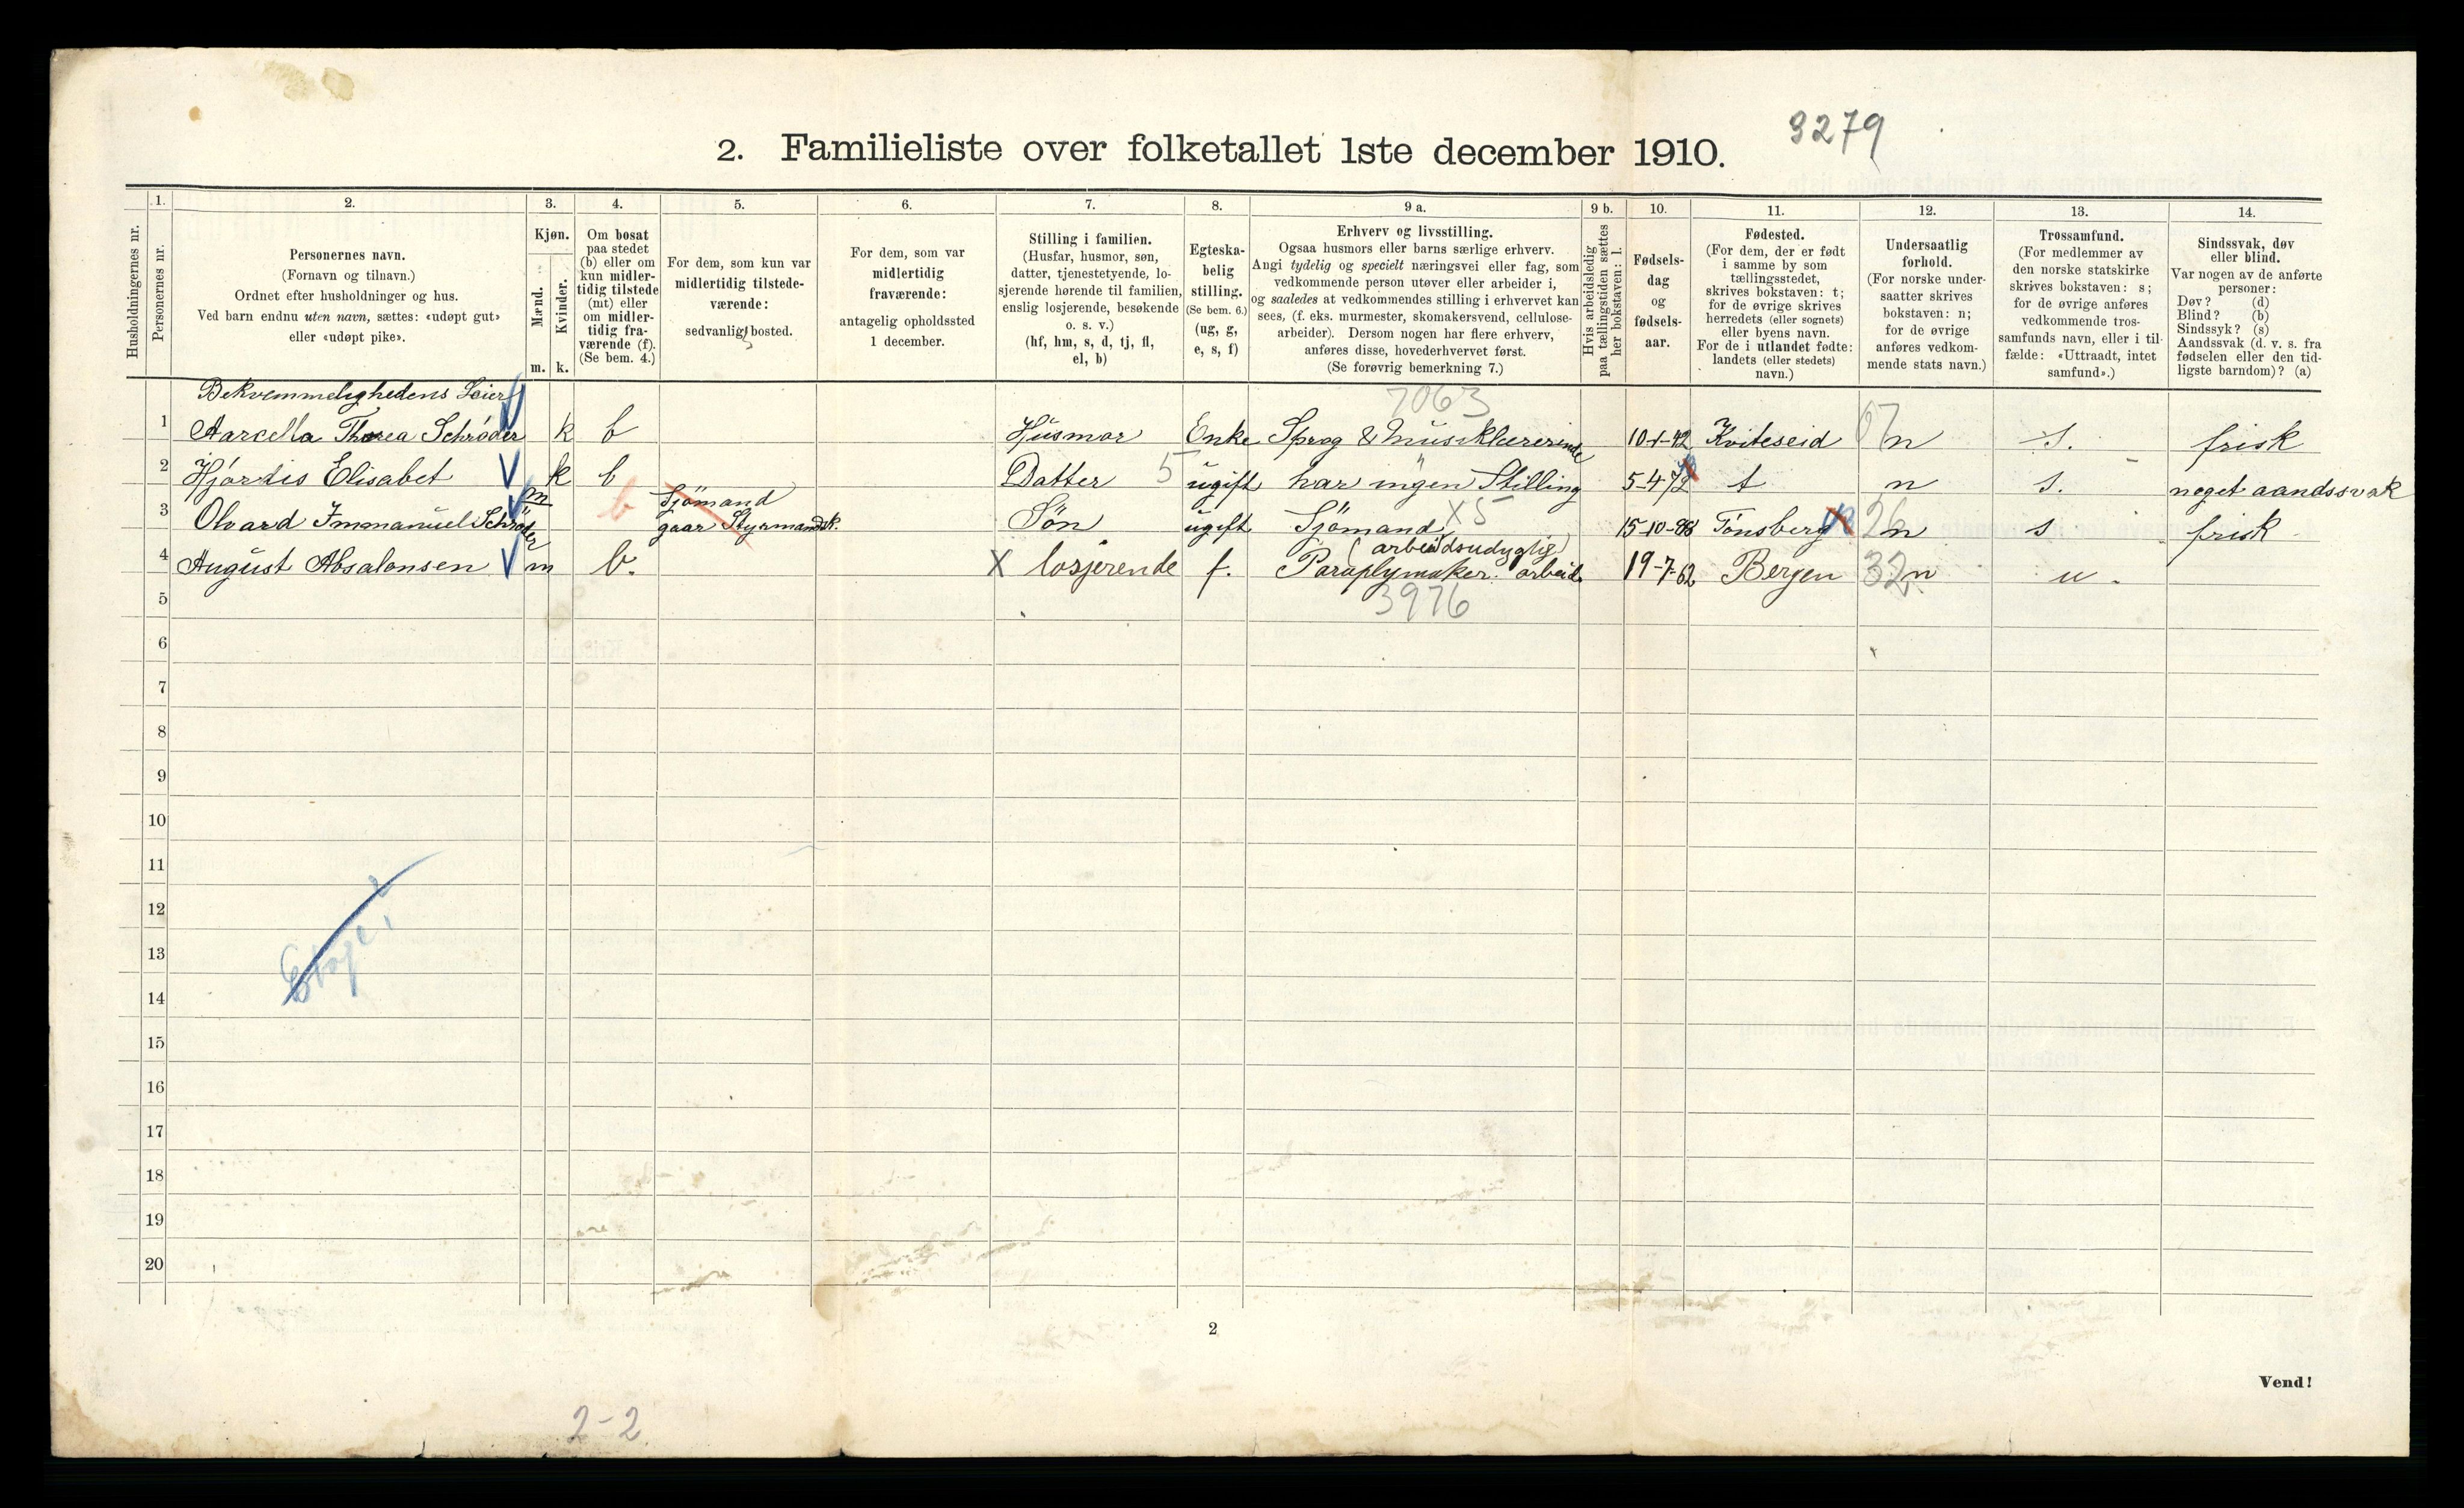 3279
2. Familieliste over folketallet 1ste december 1910.
Husholdningernes nr.
1.
Personernes nr.
2.
Personernes navn.
(Fornavn og tilnavn.)
Ordnet efter husholdninger og hus.
Ved barn endnu uten navn, sættes: «udøpt gut»
eller «udøpt pike».
3.
Kjøn.
Mænd.
Kvinder.
m. k.
4.
Om bosat
paa stedet
(b) eller om
kun midler-
tidig tilstede
(mt) eller
om midler-
tidig fra-
værende (f).
(Se bem. 4.)
5.
For dem, som kun var
midlertidig tilstede-
værende:
sedvanlig bosted.
6.
For dem, som var
midlertidig
fraværende:
antagelig opholdssted
1 december.
7.
Stilling i familien.
(Husfar, husmor, søn,
datter, tjenestetyende, lo-
sjerende hørende til familien,
enslig losjerende, besøkende
o. s. v.)
(hf, hm, s, d, tj, fl,
el, b)
8.
Egteska-
belig
stilling.
(Se bem. 6.)
(ug, g,
e, s, f)
9 a.
Erhverv og livsstilling.
Ogsaa husmors eller barns særlige erhverv.
Angi tydelig og specielt næringsvei eller fag, som
vedkommende person utøver eller arbeider i,
og saaledes at vedkommendes stilling i erhvervet kan
sees, (f. eks. murmester, skomakersvend, cellulose-
arbeider). Dersom nogen har flere erhverv,
anføres disse, hovederhvervet først.
(Se forøvrig bemerkning 7.)
9 b.
Hvis arbeidsledig
paa tællingstiden sættes
her bokstaven: l.
10.
Fødsels-
dag
og
fødsels-
aar.
11.
Fødested.
(For dem, der er født
i samme by som
tællingsstedet,
skrives bokstaven: t;
for de øvrige skrives
herredets (eller sognets)
eller byens navn.
For de i utlandet fødte:
landets (eller stedets)
navn.)
12.
Undersaatlig
forhold.
(For norske under-
saatter skrives
bokstaven: n;
for de øvrige
anføres vedkom-
mende stats navn.)
13.
Trossamfund.
(For medlemmer av
den norske statskirke
skrives bokstaven: s;
for de øvrige anføres
vedkommende tros-
samfunds navn, eller i til-
fælde: «Uttraadt, intet
samfund».)
14.
Sindssvak, døv
eller blind.
Var nogen av de anførte
personer:
Døv? (d)
Blind? (b)
Sindssyk? (s)
Aandssvak (d. v. s. fra
fødselen eller den tid-
ligste barndom)? (a)
Bekvemmelighedens Leier 7063
1 Marcella Thorea Schrøder k b Husmor Enke Sprog & Musiklærerinde 10-1-42 Kviteseid 07 n s. frisk
2 Hjördis Elisabet k b Datter 5 ugift har ingen Stilling 5-4-72 t n s. noget aandssvak
3 Olvard Immanuel Schrøder m b Sjömand gaar Styrmandsk. Sön ugift Sjömand X5 15-10-88 Tönsberg 26 n s frisk
(arbeidsudyglig)
4 August Absalonsen m b. X losjerende f. Paraplymaker. arbeid. 19-7-62 Bergen 32 n u.
3976
5
6
7
8
9
10
11
12
13
14
15
16
17
18
19
20
2
Vend!
2-2